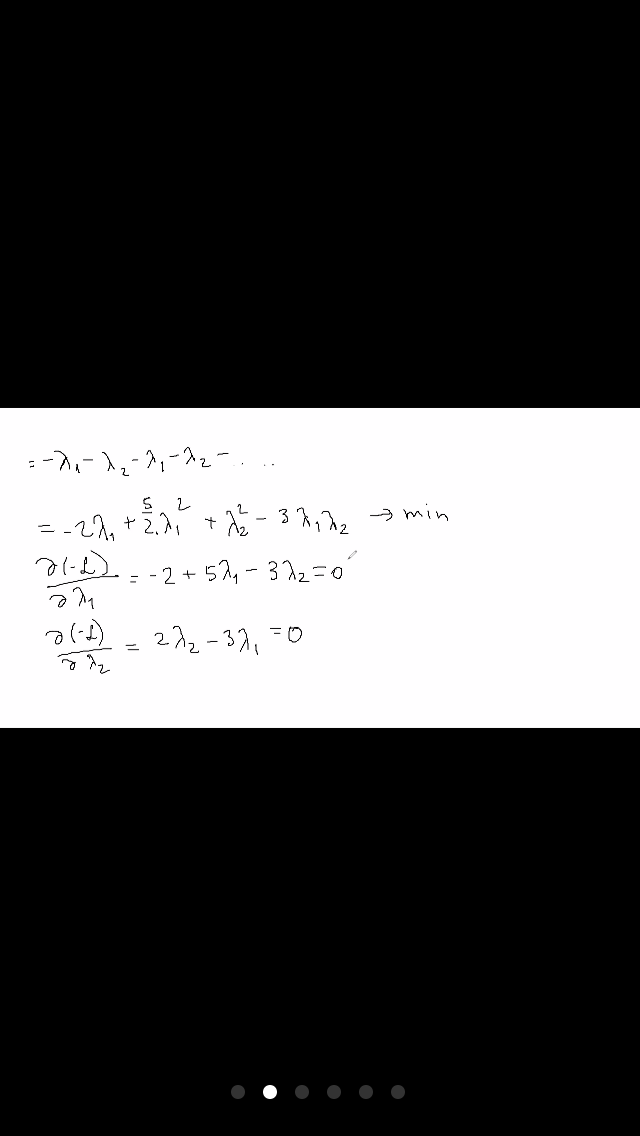 = -λ₁ - λ₂ - λ₁ - λ₂ - .. ..
= -2λ₁ + 5/2.λ₁² + λ₂² - 3λ₁λ₂ → min
∂(-L)/∂λ₁ = -2 + 5λ₁ - 3λ₂ = 0
∂(-L)/∂λ₂ = 2λ₂ - 3λ₁ = 0